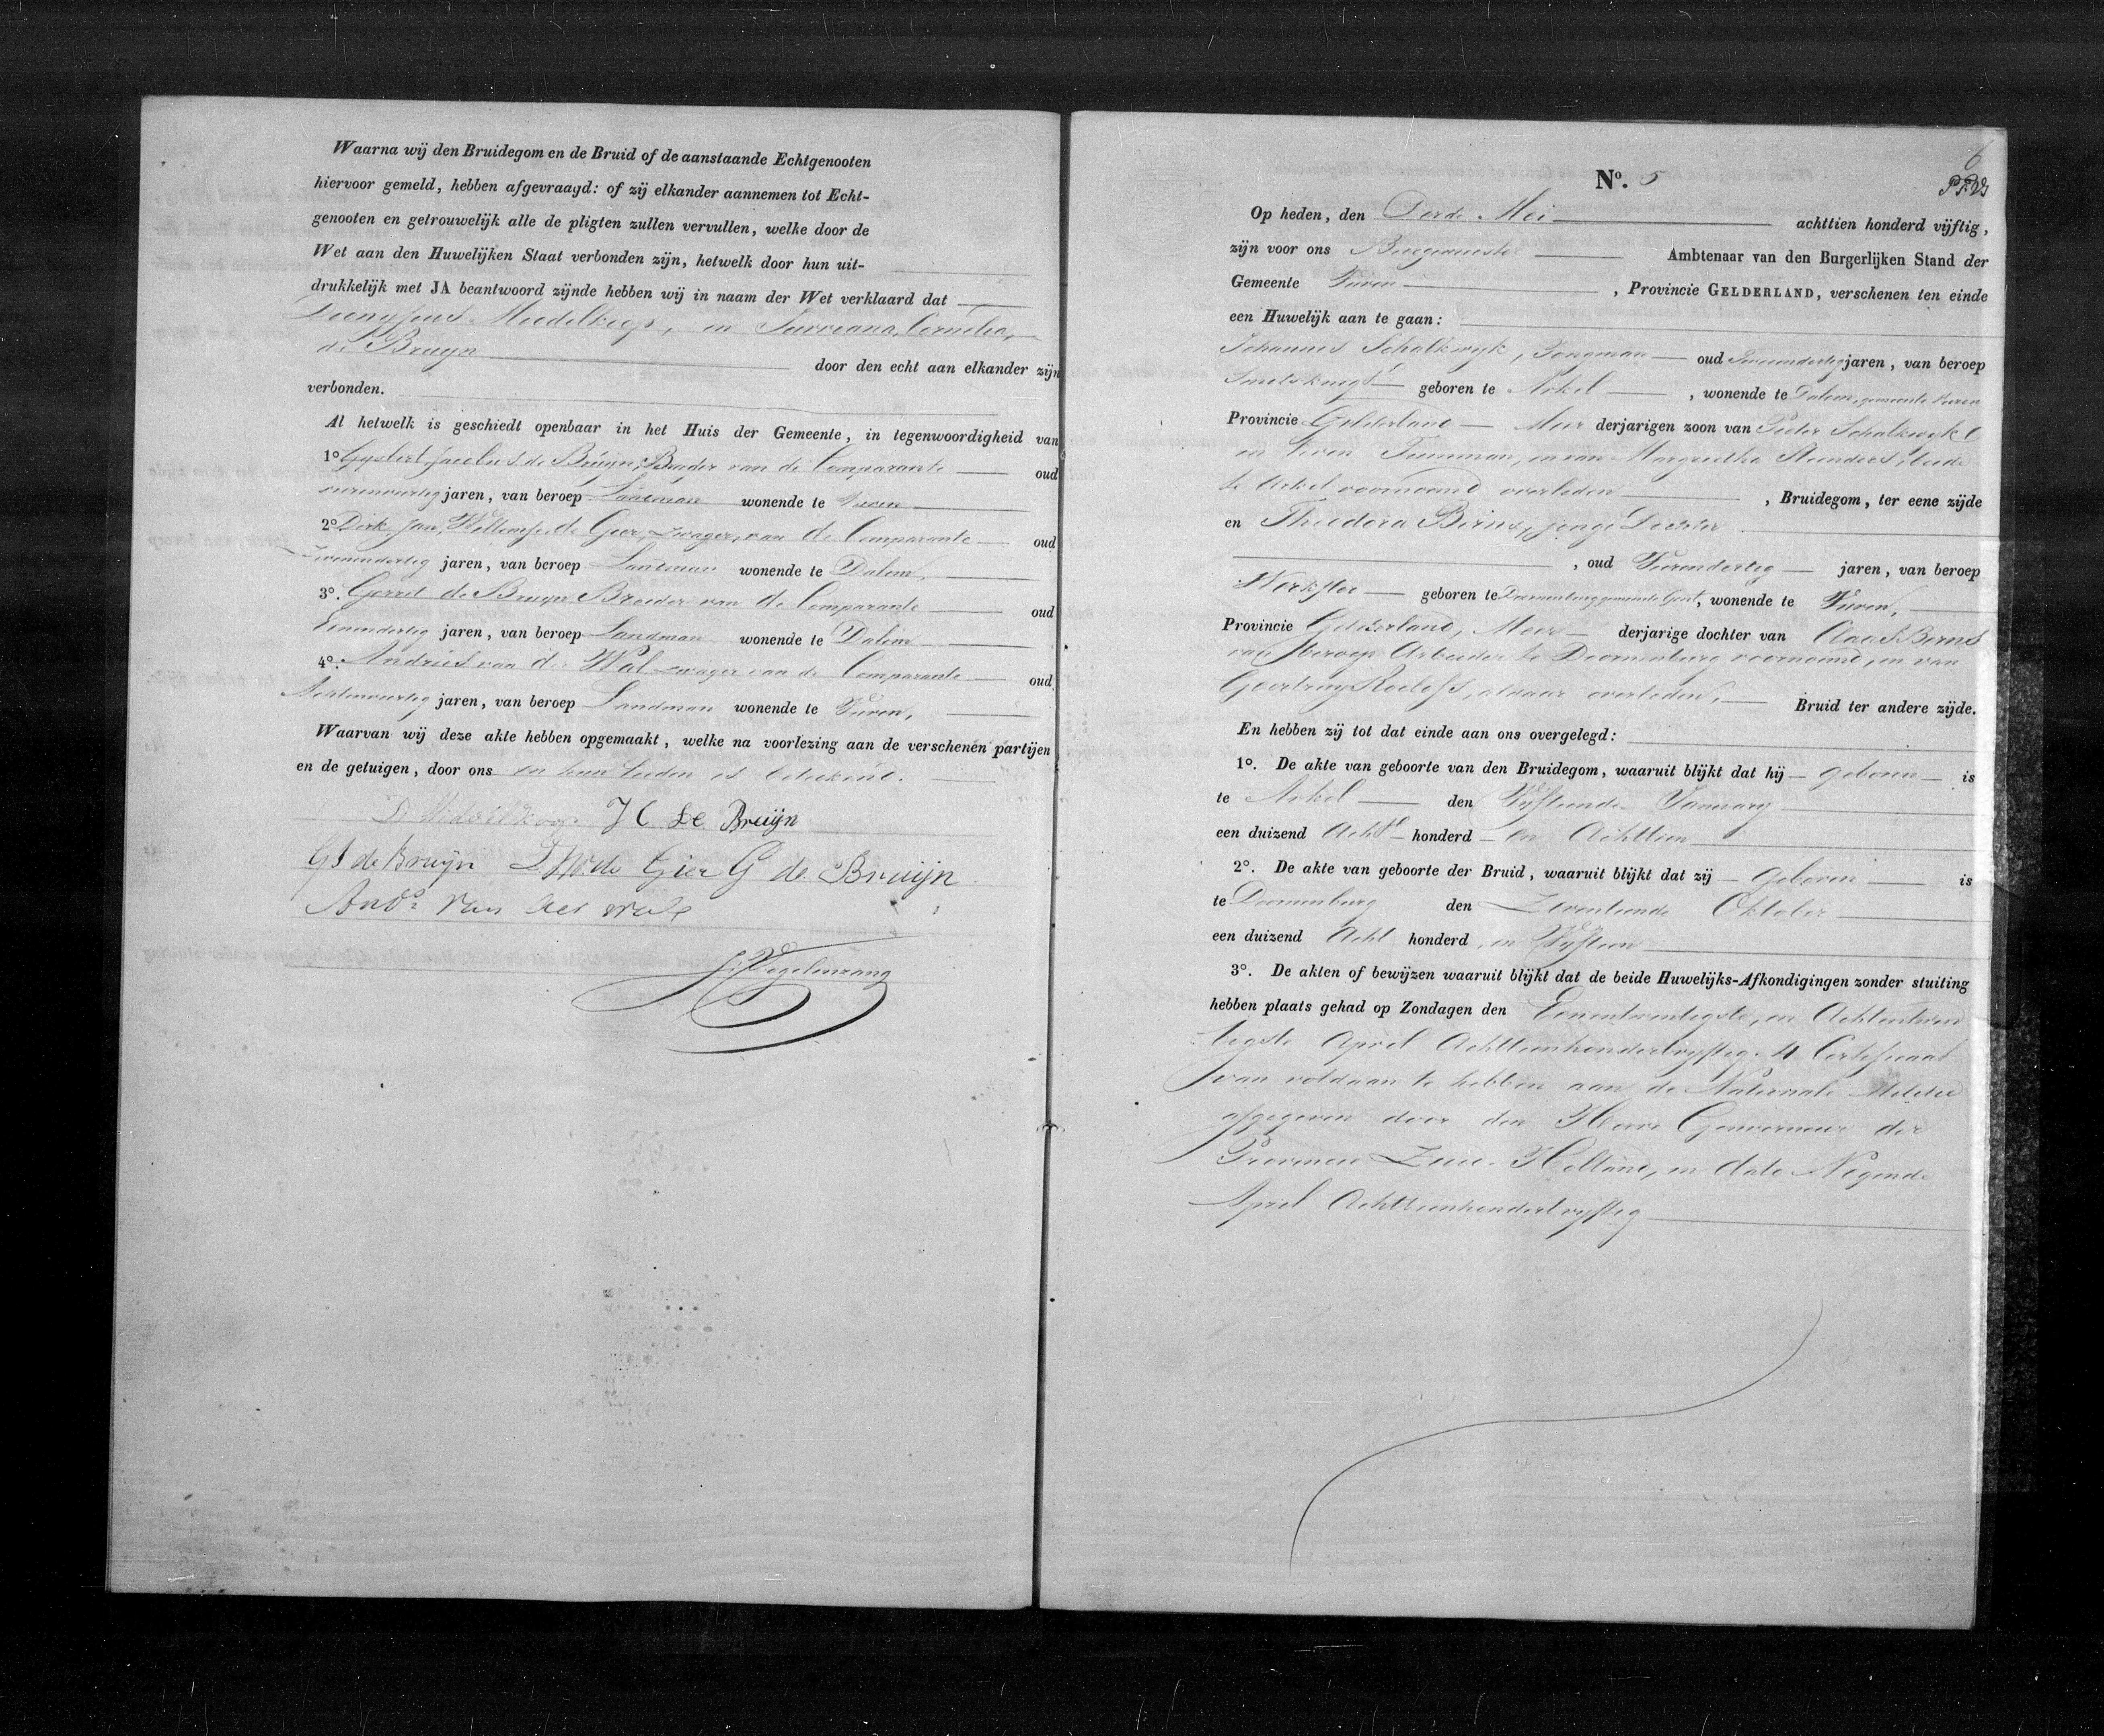 Waarna wij den Bruidegom en de Bruid of de aanstaande Echtgenooten
hiervoor gemeld, hebben afgevraagd: of zij elkander aannemen tot Echt-
genooten en getrouwelijk alle de pligten zullen vervullen, welke door de
Wet aan den Huwelijken Staat verbonden zijn, hetwelk door hun uit-
drukkelijk met JA beantwoord zijnde hebben wij in naam der Wet verklaard dat
Middelkoop, en Cornelia,
de Bruijn door den echt aan elkander zijn
verbonden.
Al hetwelk is geschiedt openbaar in het Huis der Gemeente, in tegenwoordigheid van
1o Gysbert Jacobus de Bruijn, Broeder van de Comparante oud
jaren, van beroep Landman wonende te Vuren
2o Dirk Jan Willemse de Gier, zwager, van de Comparante oud
jaren, van beroep Landman wonende te Dalem,
3o. Gerrit de Bruijn Broeder van de Comparante oud
Eenendertig jaren, van beroep Landman wonende te Dalem
4o. Andries van de Wal zwager van de Comparante oud
Achtenveertig jaren, van beroep Landman wonende te Vuren,
Waarvan wij deze akte hebben opgemaakt, welke na voorlezing aan de verschenen partijen
en de getuigen, door ons en hun lieden is geteekend.
D Middelkoop J C de Bruijn
G J de Bruijn D J W de Gier G de Bruijn
And.s van der wal
Vogelenzang
6
No. 5
Op heden, den Derde Mei achttien honderd vijftig,
zijn voor ons Burgemeester Ambtenaar van den Burgerlijken Stand der
Gemeente Vuren, Provincie GELDERLAND, verschenen ten einde
een Huwelijk aan te gaan:
Johannes Schalkwyk, Jongman oud Tweeendertig jaren, van beroep
Smidsknegt geboren te Arkel, wonende te Dalem, gemeente Vuren
Provincie Gelderland Meer derjarigen zoon van Pieter Schalkwyk
in leven Timmerman, en van Margrietha Steenders, beide
te Arkel voornoemd overleden, Bruidegom, ter eene zijde
en Theodora Berns, jonge Dochter
, oud Vierendertig jaren, van beroep
Werkster geboren te Doornenburg gemeente Gent, wonende te Vuren,
Provincie Gelderland, Meer derjarige dochter van Claas Berns
van beroep Arbeider te Doornenburg voornoemd, en van
Geertruy Roelofs, aldaar overleden, Bruid ter andere zijde.
En hebben zij tot dat einde aan ons overgelegd:
1o. De akte van geboorte van den Bruidegom, waaruit blijkt dat hij geboren is
te Arkel den Vyftiende January
een duizend Acht honderd en Achttien
2o. De akte van geboorte der Bruid, waaruit blijkt dat zij geboren is
te Doornenburg den Zeventiende Oktober
een duizend Acht honderd, en Vyftien
3o. De akten of bewijzen waaruit blijkt dat de beide Huwelijks-Afkondigingen zonder stuiting
hebben plaats gehad op Zondagen den Eenentwintigste, en Achtentwin
tigste April Achttienhonderdvyftig. 4 Certificaat
van voldaan te hebben aan de Nationale Militie
afgegeven door den Heere Gouverneur der
Provincie Zuid-Holland, in dato Negende
April Achttienhonderdvyftig